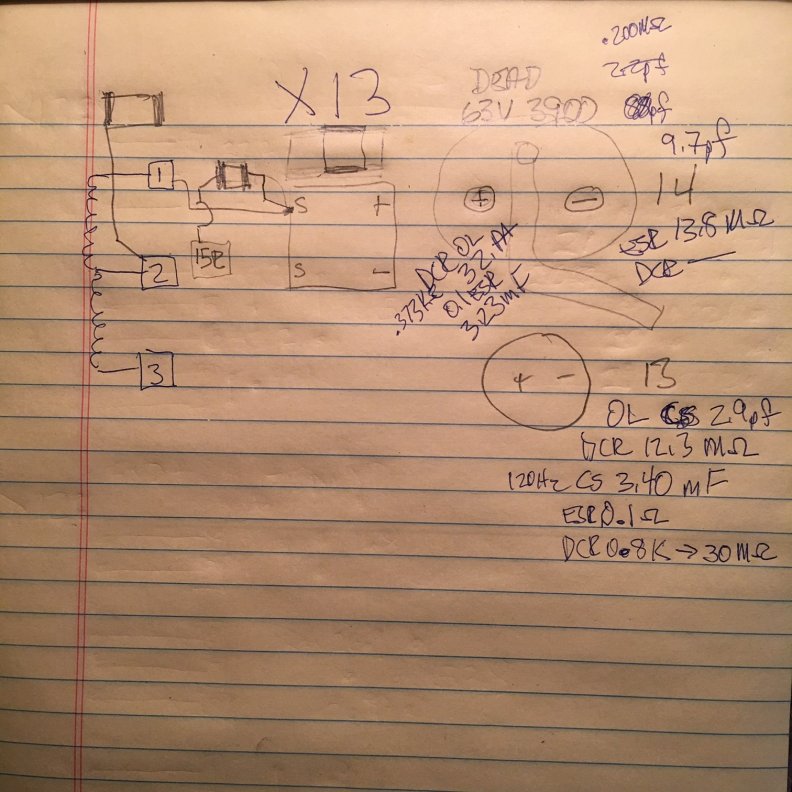 .200MΩ
2.2pf
X13
DEAD
63V 3900
pf
9.7pf
1
S
+
+
−
14
15R
ESR 13.8 MΩ
2
S
−
DCR —
DCR OL
.373K
0.1 ESR
3.23mF
3
+ −
13
OL CS 2.9pf
DCR 12.3 MΩ
120Hz CS 3.40 mF
ESR 0.1Ω
DCR 0.8K → 30MΩ